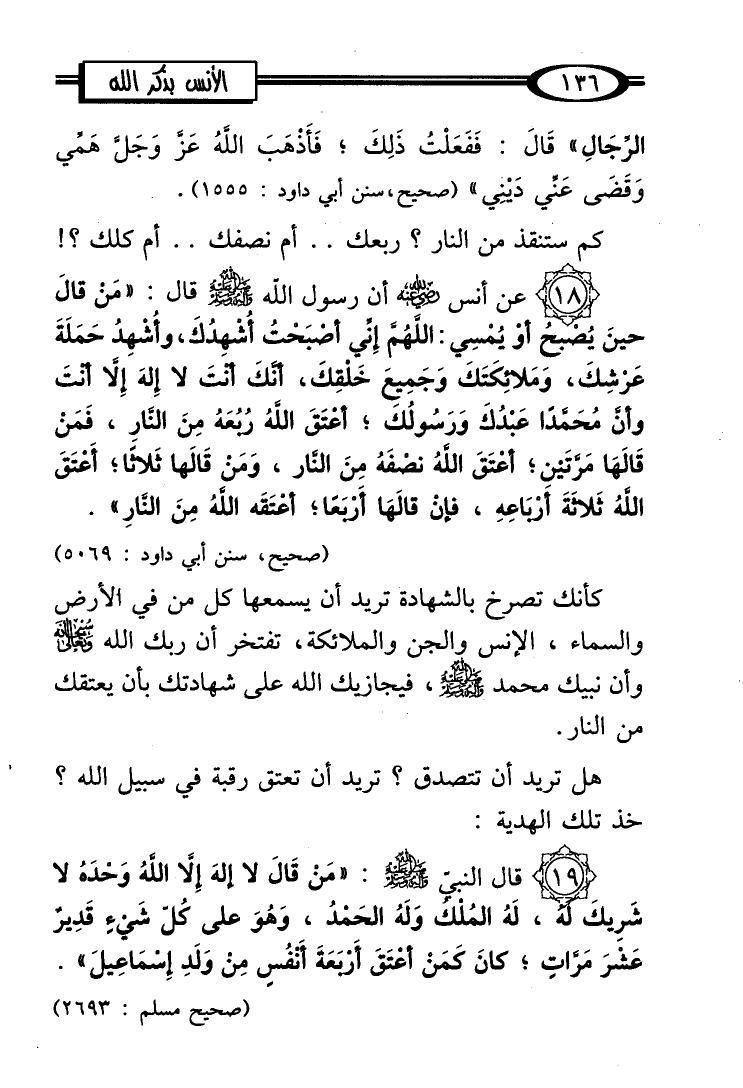 ١٣٦
الأنس بذكر الله
الرِّجَالِ» قَالَ : فَفَعَلْتُ ذَلِكَ ؛ فَأَذْهَبَ اللَّهُ عَزَّ وَجَلَّ هَمِّي
وَقَضَى عَنِّي دَيْنِي» (صحيح،سنن أبي داود : ١٥٥٥) .
كم ستنقذ من النار ؟ ربعك .. أم نصفك .. أم كلك ؟!
١٨ عن أنس رضي الله عنه أن رسول اللّه ﷺ قال : «مَنْ قالَ
حينَ يُصْبحُ أوْ يُمْسِي: اللَّهُمَّ إنِّي أصْبَحْتُ أُشْهِدُكَ،وأُشْهِدُ حَمَلَةَ
عَرْشِكَ، وَمَلائِكَتَكَ وَجَمِيعَ خَلْقِكَ، أنَّكَ أنْتَ لا إلهَ إلَّا أنْتَ
وأنَّ مُحَمَّدًا عَبْدُكَ وَرَسُولُكَ ؛ أعْتَقَ اللَّهُ رُبُعَهُ مِنَ النَّارِ ، فَمَنْ
قَالَهَا مَرَّتَيْنِ؛ أعْتَقَ اللَّهُ نصْفَهُ مِنَ النَّار ، وَمَنْ قَالَها ثَلاثًا؛ أَعْتَقَ
اللَّهُ ثَلاثَةَ أَرْبَاعِهِ ، فإنْ قالَهَا أَرْبَعًا؛ أعْتَقَه اللَّهُ مِنَ النَّارِ» .
(صحيح، سنن أبي داود : ٥٠٦٩)
كأنك تصرخ بالشهادة تريد أن يسمعها كل من في الأرض
والسماء ، الإنس والجن والملائكة، تفتخر أن ربك الله سبحانه وتعالى
وأن نبيك محمد ﷺ ، فيجازيك الله على شهادتك بأن يعتقك
من النار.
هل تريد أن تتصدق ؟ تريد أن تعتق رقبة في سبيل الله ؟
خذ تلك الهدية :
١٩ قال النبيّ ﷺ : «مَنْ قَالَ لا إلهَ إلَّا اللَّهُ وَحْدَهُ لا
شَرِيكَ لَهُ ، لَهُ المُلْكُ وَلَهُ الحَمْدُ ، وَهُوَ على كُلّ شَيْءٍ قَدِيرٌ
عَشْرَ مَرَّاتٍ ؛ كانَ كَمَنْ أعْتَقَ أَرْبَعَةَ أَنْفُسٍ مِنْ وَلَدِ إِسْمَاعِيلَ» .
(صحيح مسلم : ٢٦٩٣)